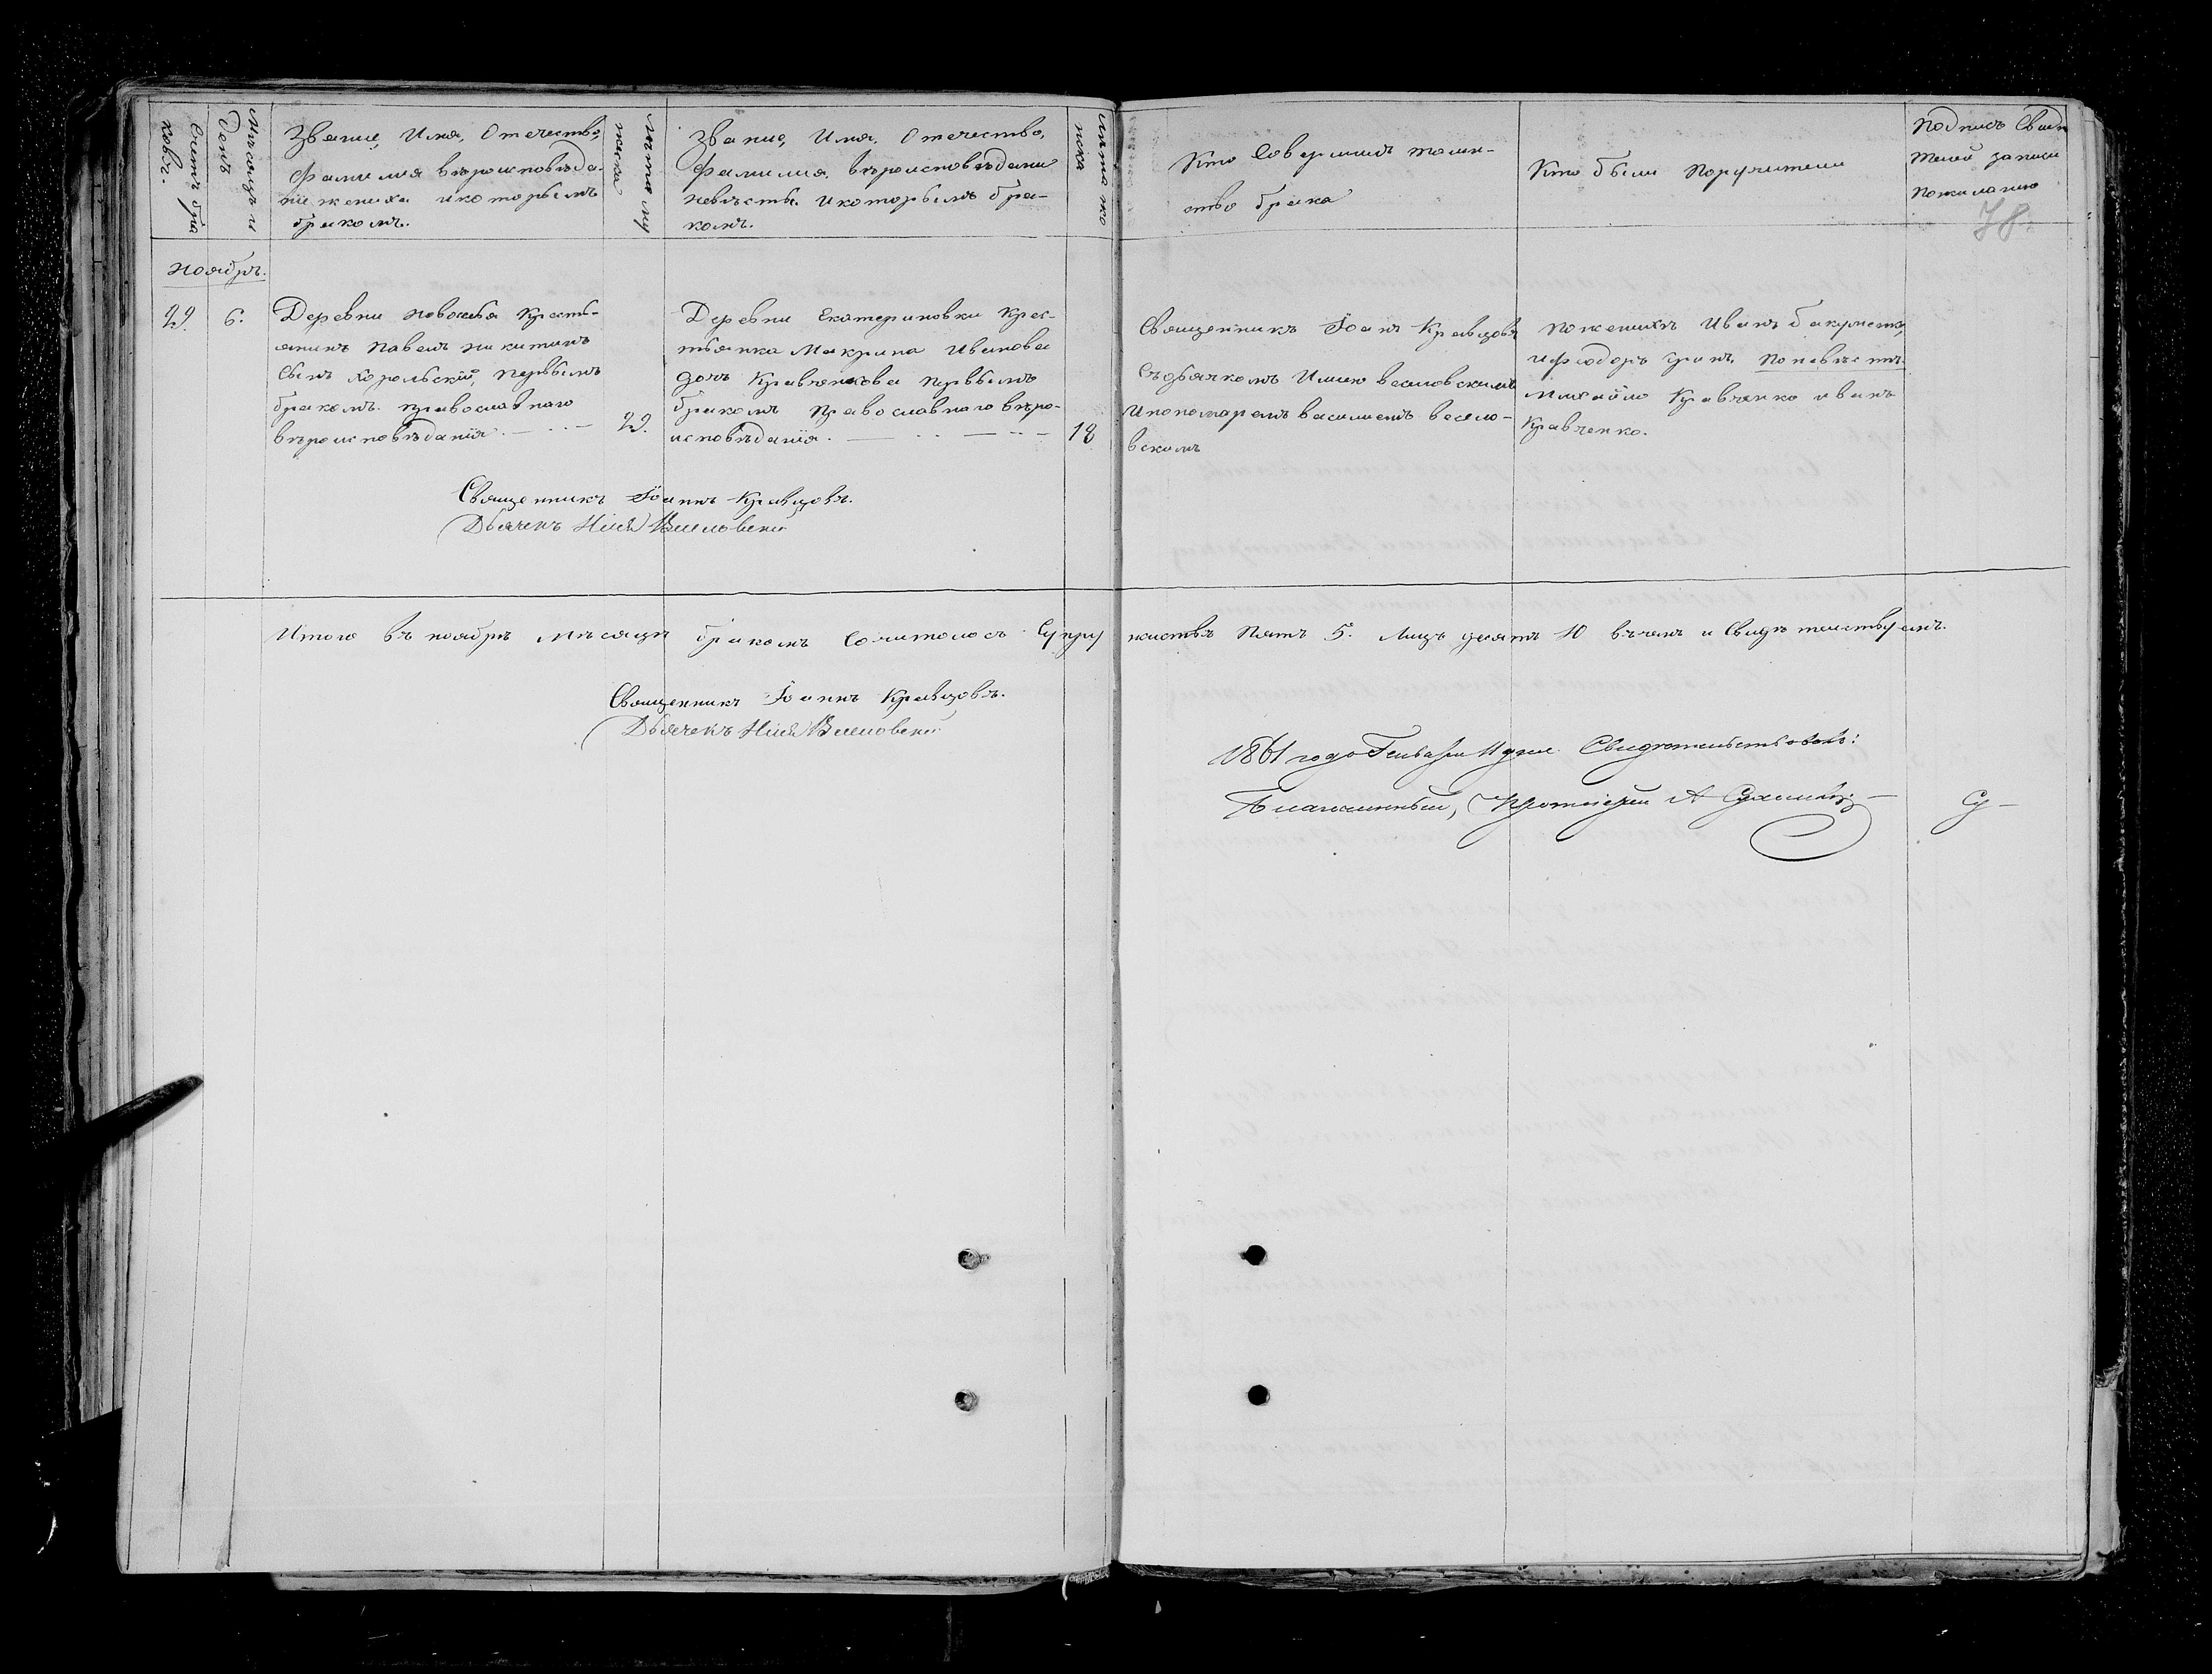 Счетъ бра
ковъ.
Мѣсяцъ и
день
Званіе, Имя, Отечество,
Фамилія вѣроисповѣда-
ніе жениха и которымъ
бракомъ.
лѣта му
жеска
Званіе, Имя, Отечество,
Фамилия, вѣроисповѣдание
невѣсты. и которымъ бра-
комъ.
лѣта же
нска
Кто совершилъ таин-
ство брака
Кто были поручители
Подписъ свидѣ
телей записи
по желанию
78.
ноябрь.
29. 6. Деревни Новоселья крестъ-
янинъ Павелъ Никитинъ
сынъ Корольскій, первымъ
бракомъ. православнаго
вѣроисповѣданія. 29.
Деревни Екатериновки крес-
тьянка Макрина Иванова
дочь Кравченкова первымъ
бракомъ православнаго вѣро-
исповѣданія. 18
Священникъ Іоанъ Кравцовъ
съ дьячкомъ Илиею Веселовскимъ
и пономаремъ Василиемъ Весело-
вскимъ
по женихѣ Иванъ
и Феодоръ по невѣстѣ
Михайло Кравченко иванъ
Кравченко.
Священникъ Іоаннъ Кравцовъ.
Дьячекъ Илія Веселовскій
Итого въ ноябрѣ мѣсяцѣ бракомъ сочиталось супру жествъ пять 5. лицъ десять 10 вѣрно и свидѣтельствуемъ.
Священникъ Іоаннъ Кравцовъ.
Дьячекъ Илія Веселовскій
1861 года Генваря 11 дня Свидѣтельствовалъ:
Благочинный, Протоіерей А